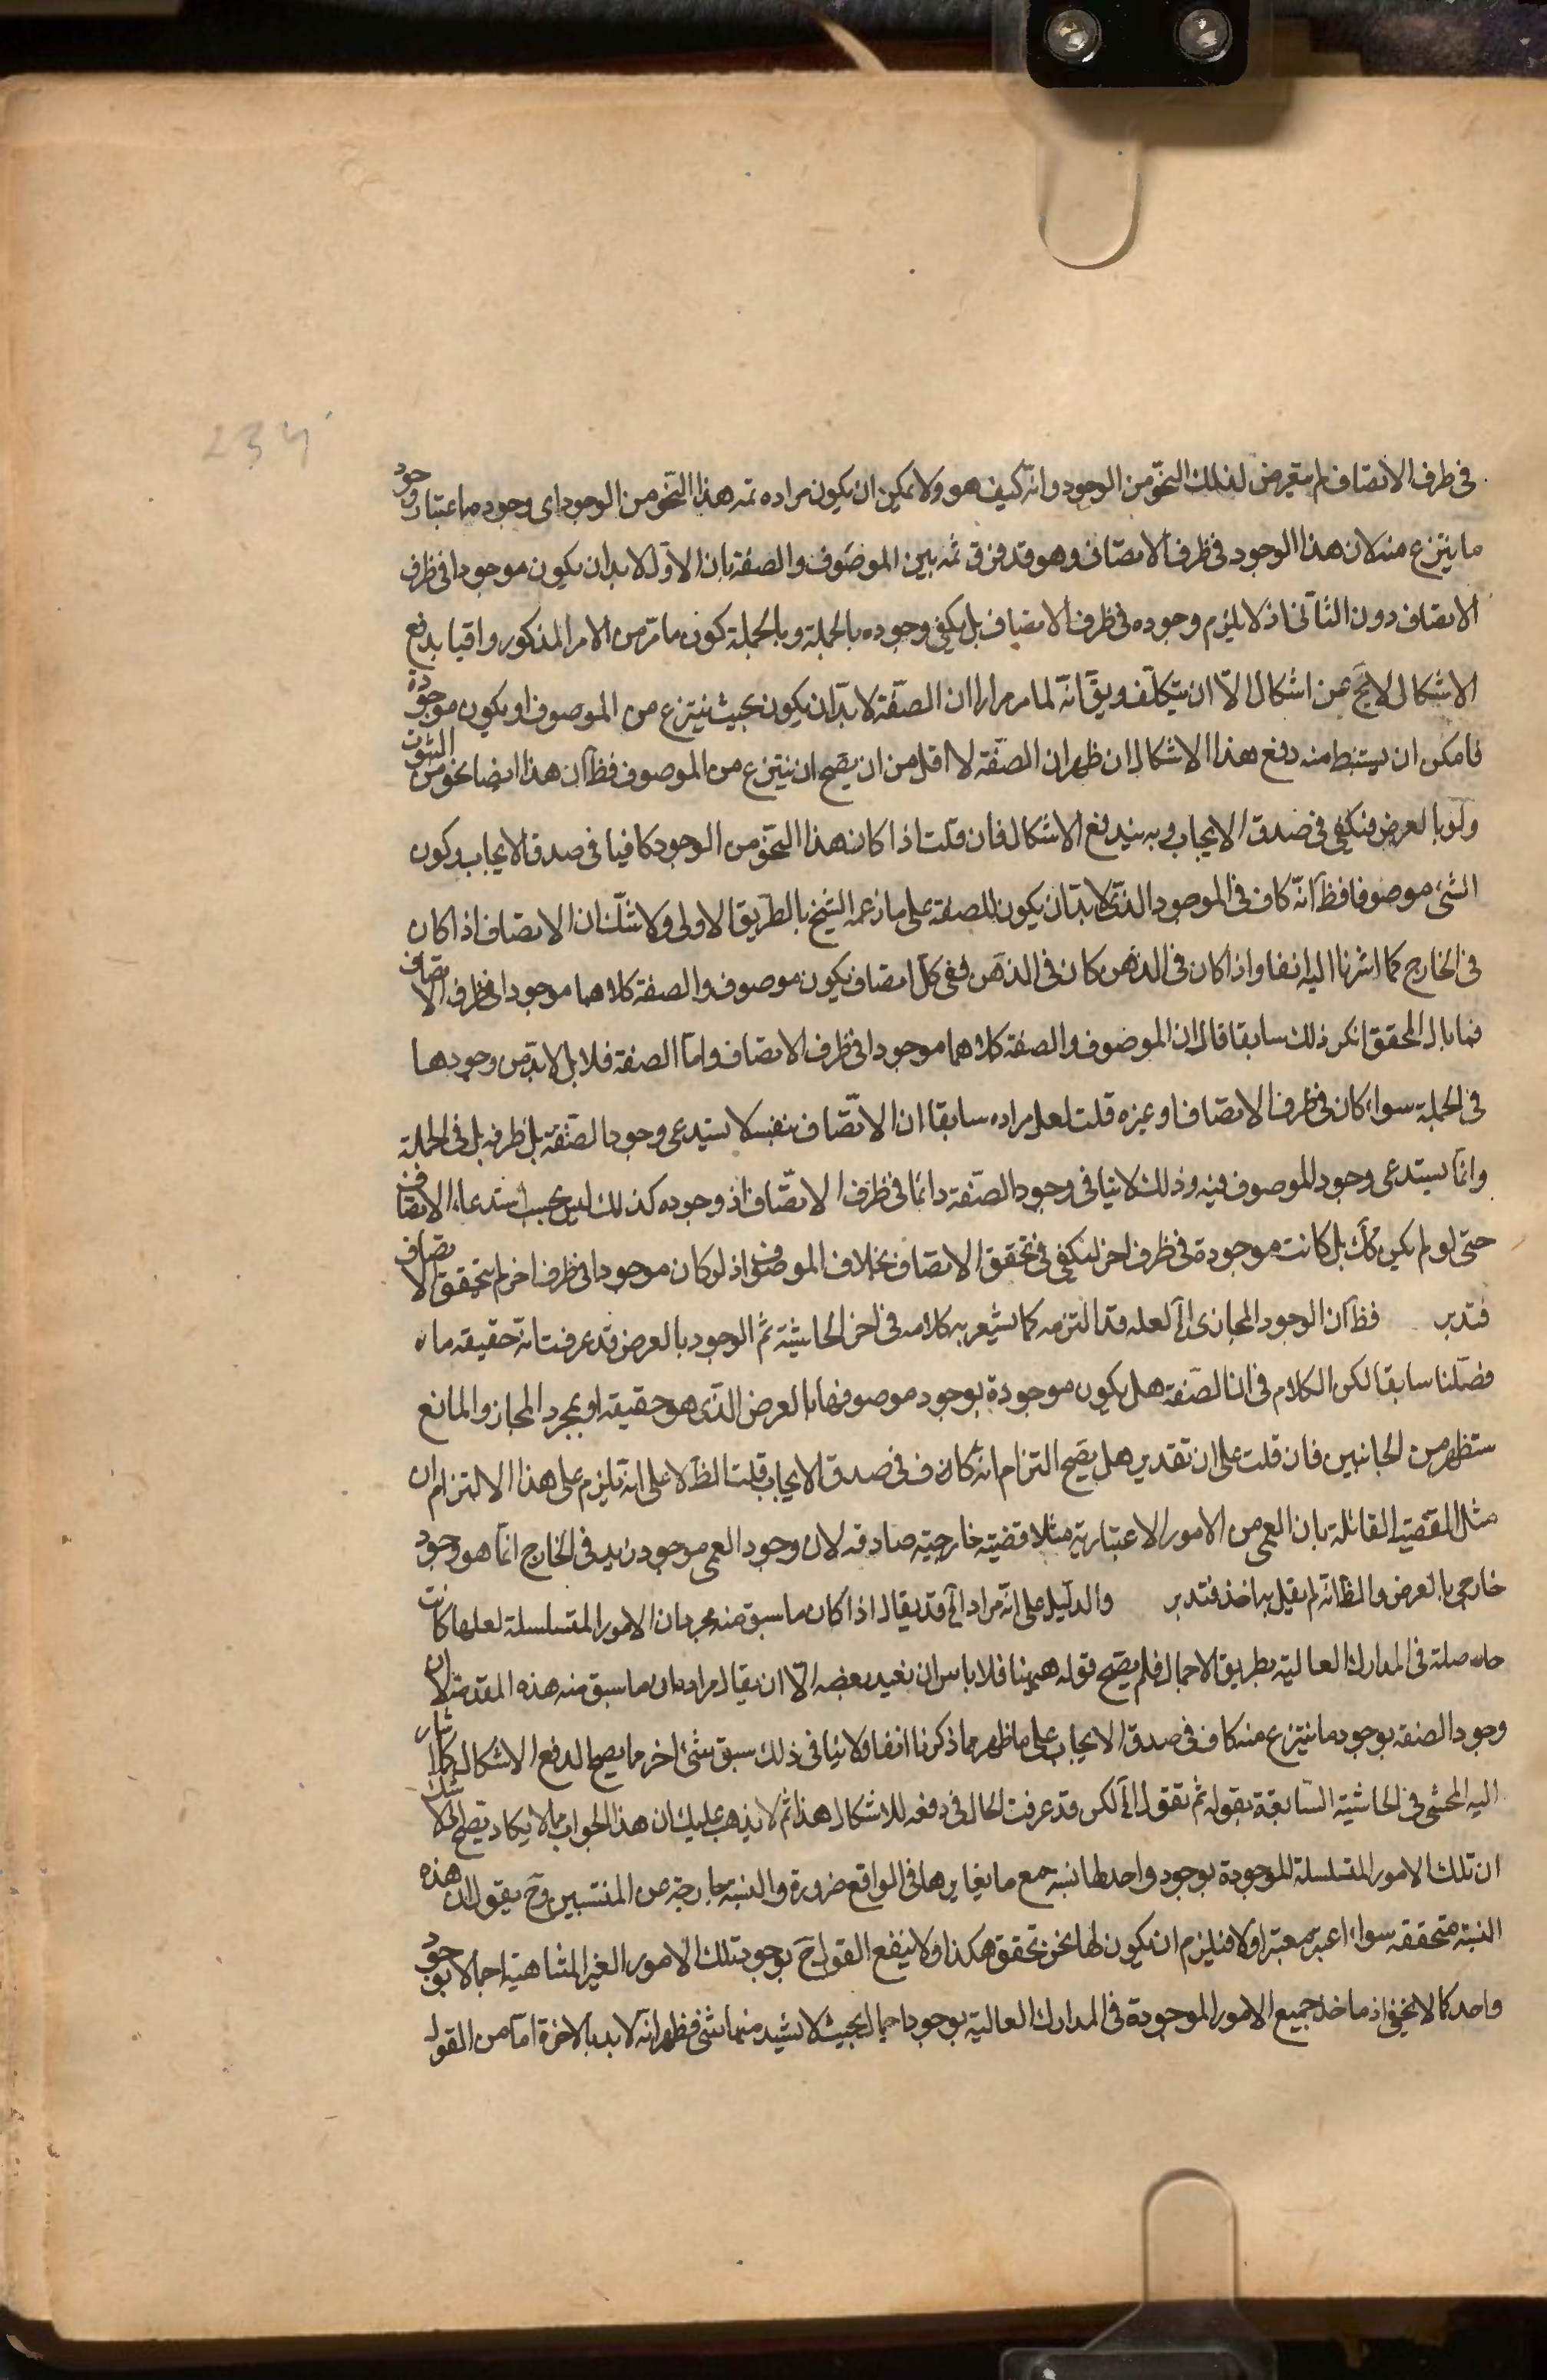 234
في ظرف الاتصاف لم يتعرض لذلك النحو من الوجود وانه كيف هو ولا يمكن ان يكون مراده ثمه هذا النحو من الوجود اى وجوده باعتبار وجود
ما ينتزع منه لان هذا الوجود في ظرف الاتصاف وهو قد فرق ثمه بين الموصوف والصفة بان الاول لا بد ان يكون موجودا في ظرف
الاتصاف دون الثانى اذ لا يلزم وجوده في ظرف الاتصاف بل يكفى وجوده بالجملة وبالجملة كون ما مر من الامر المذكور واقيا بدفع
الاشكال لا يخ عن اشكال الا ان يتكلف ويق انه لما مر مرارا ان الصفة لا بد ان يكون بحيث ينتزع من الموصوف او يكون موجودة
فامكن ان يستنبط منه دفع هذا الاشكال ان ظهر ان الصفة لا اقل من ان يصح ان ينتزع من الموصوف فظ ان هذا ايضا نحو من الثبوت
ولو بالعرض فيكفى في صدق الايجاب وبه يندفع الاشكال فان قلت اذا كان هذا النحو من الوجود كافيا في صدق الايجاب وكون
الشئ موصوفا فظ انه كاف في الموجود الذى لا بد ان يكون للصفة على ما زعمه الشيخ بالطريق الاولى ولا شك ان الاتصاف اذا كان
في الخارج كما اشرنا اليه انفا واذا كان في الذهن كان في الذهن ففى كل اتصاف يكون موصوف والصفة كلاهما موجودا في ظرف الاتصاف
فما بال المحقق انكر ذلك سابقا قال ان الموصوف والصفة كلاهما موجودا في ظرف الاتصاف واما الصفة فلا بل لا بد من وجودها
في الجملة سواء كان في ظرف الاتصاف او غيره قلت لعل مراده سابقا ان الاتصاف بنفسه لا يستدعى وجود الصفة بل ظرفه بل في الجملة
وانما يستدعى وجود الموصوف فيه وذلك لا ينافى وجود الصفة دائما في ظرف الاتصاف اذ وجوده كذلك ليس بحسب استدعاء الاتصاف
حتى لو لم يكن كك بل كانت موجودة في ظرف اخر لكفى في تحقق الاتصاف بخلاف الموصوف اذ لو كان موجودا في ظرف اخر لم يتحقق الاتصاف
فتدبر فظ ان الوجود المجازى الخ لعله قد التزمه كما يشعر به كلامه في اخر الحاشية ثم الوجود بالعرض قد عرفت انه حقيقه ماه
فصلنا سابقا لكن الكلام في ان الصفة هل يكون موجودة بوجود موصوفها بالعرض الذى هو حقيقة او بمجرد المجاز والمانع
ستظهر من الجانبين فان قلت على ان تقدير هل يصح التزام انه كاف في صدق الايجاب قلت الظ لا على انه يلزم على هذا الالتزام ان
مثل القضية القائلة بان العمى من الامور الاعتبارية مثلا قضية خارجية صادقه لان وجود العمى موجود زيد في الخارج انما هو وجود
خارجى بالعرض والظ انه لم يقل به احد فتدبر والدليل على انه مراد الخ قد يقال اذا كان ما سبق منه مجرد ان الامور المتسلسلة لعلها كانت
حاصلة في المدارك العالية بطريق الاجمال فلم يصح قوله هيهنا فلا باس ان نعيد بعضه الا ان يقال مراده ان ما سبق منه هذه المقدمة لان
وجود الصفة بوجود ما ينتزع منه كاف في صدق الايجاب على ما ظهر مما ذكرنا انفا ولا ينافى ذلك سبق شئ اخر مما يصح لدفع الاشكال كما اشار
اليه المحشى في الحاشية السابقة بقوله ثم نقول الخ لكن قد عرفت الحال في دفعه للاشكال هذا ثم لا يذهب عليك ان هذا الجواب مما لا يكاد يصح اذ لا شك
ان تلك الامور المتسلسلة الموجودة بوجود واحد لها نسبة مع ما يغايرها في الواقع ضرورة والنسبة خارجة عن المنتسبين وح يقول ان هذه
النسبة متحققه سواء اعتبر معتبر او لا فيلزم ان يكون لها نحو تحقق هكذا ولا ينفع القول ح بوجود تلك الامور الغير المتناهية اجمالا بوجود
واحد كما لا يخفى اذ ما خذ جميع الامور الموجودة في المدارك العالية بوجود اجمالى بحيث لا يشذ منها شئ فظهر انه لا بد بالاخرة اما من القول